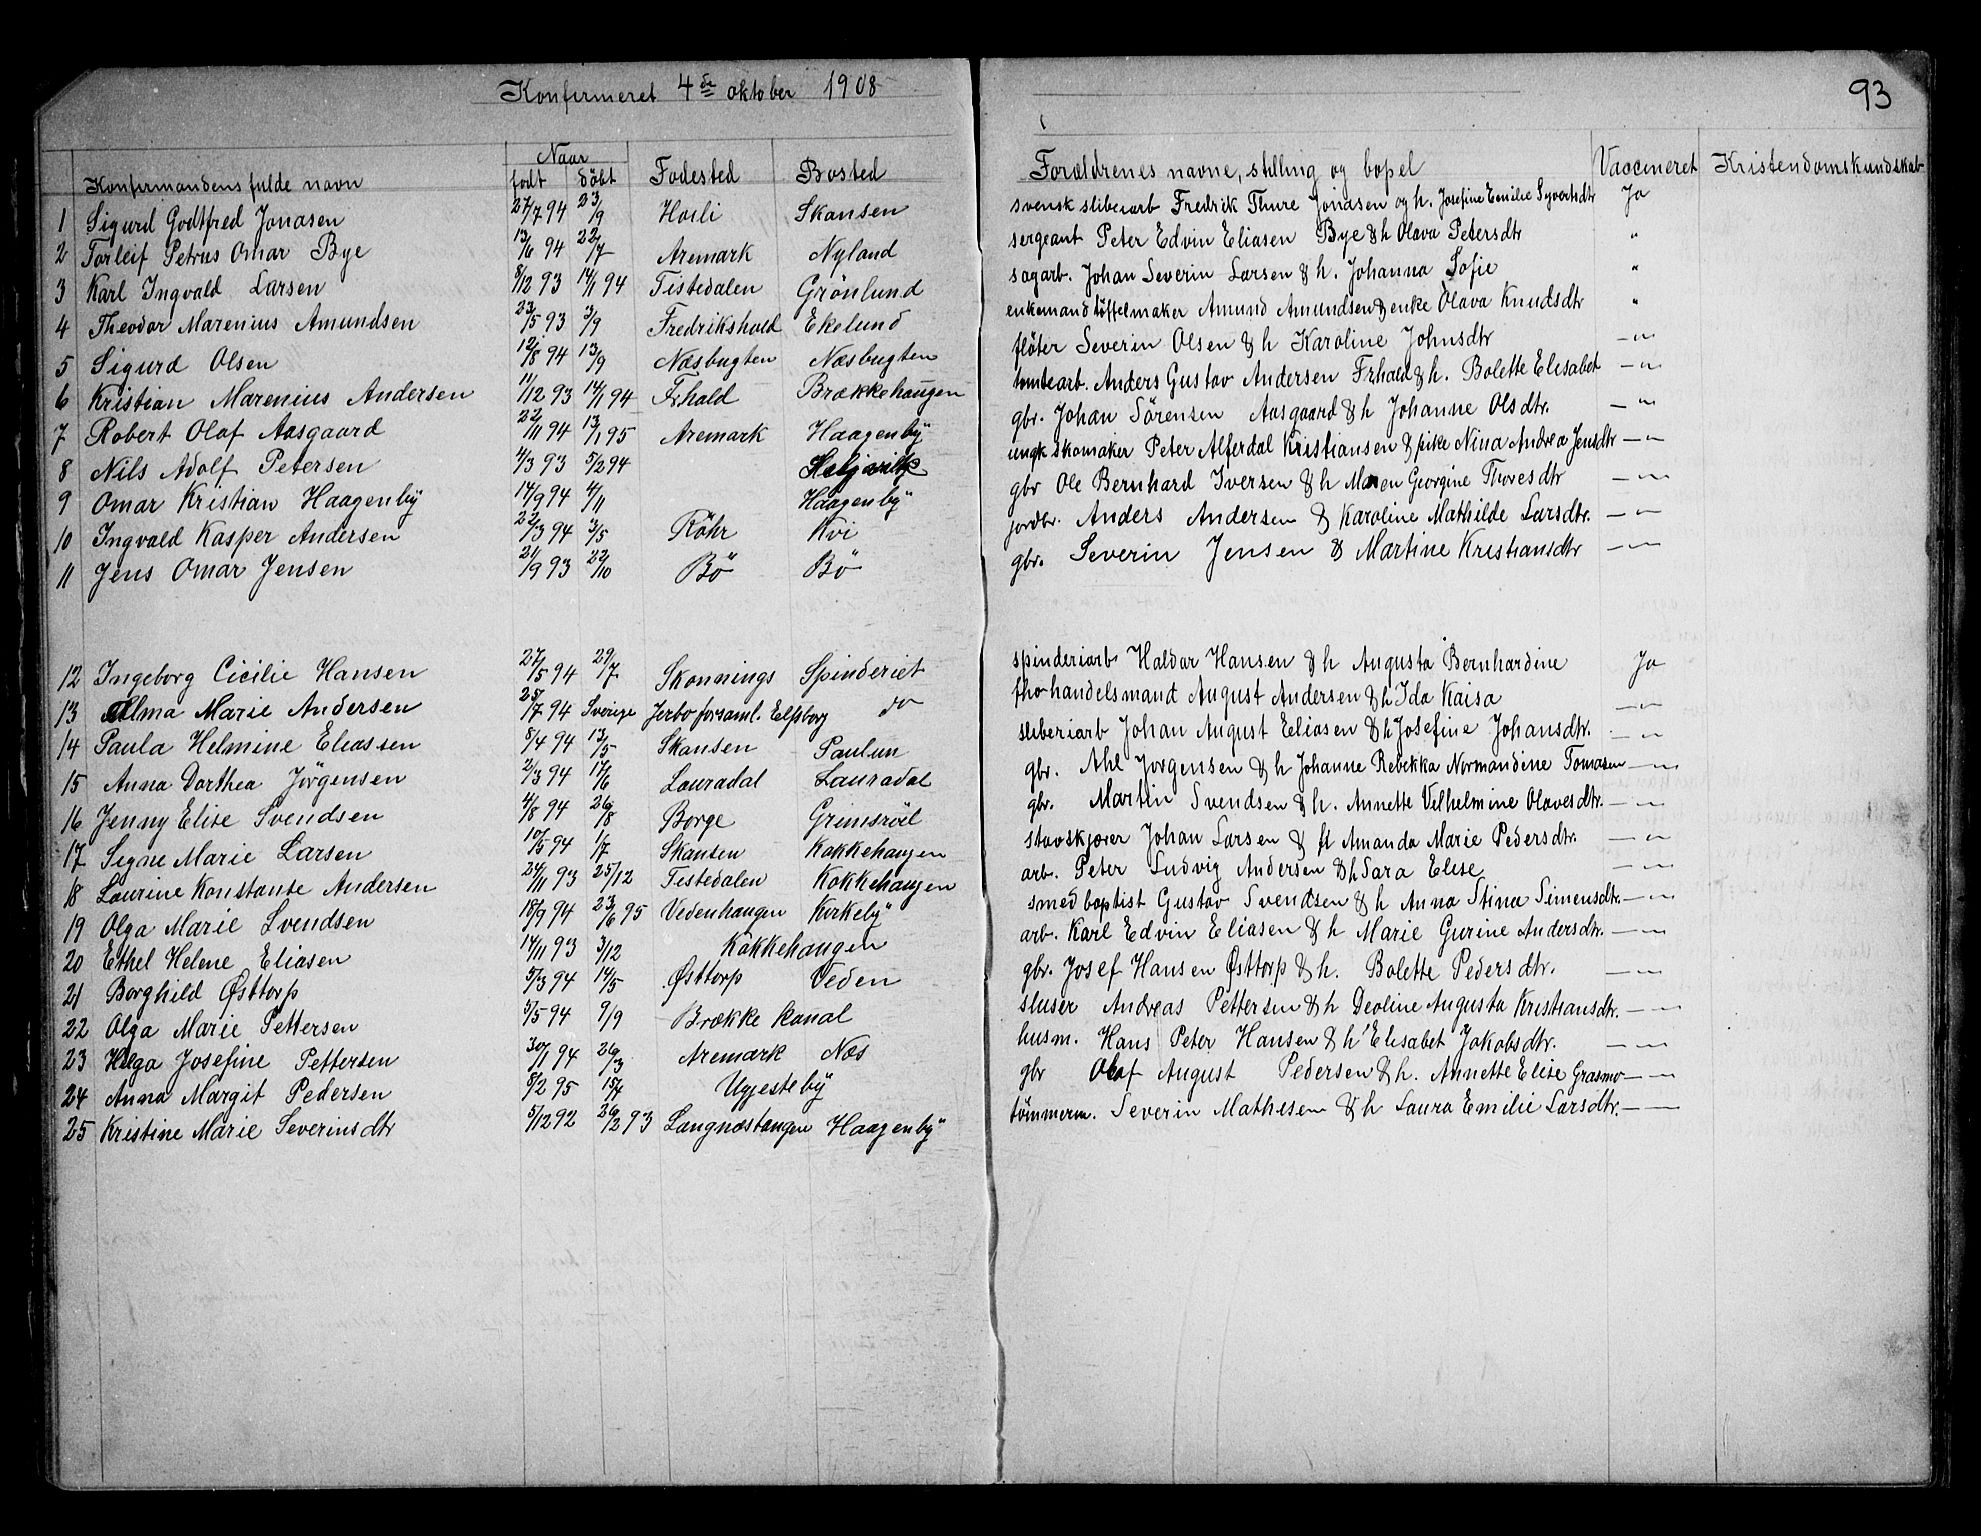 Konfirmeret 4de oktober 1908
93
Konfirmandens fulde navn | Naar født | døbt | Fødested | Bosted | Forældrenes navne, stilling og bopel | Vaccineret | Kristendomskundskab
1 Sigurd Godtfred Jonasen 27/7 94 23/9 Holi Skansen svensk sliberarb Fredrik Thure Jonasen og h. Josefine Emilie Syvertsdtr Ja
2 Torleif Petrus Omar Bye 13/6 94 22/7 Aremark Nyland sergeant Peter Edvin Eliasen Bye & h Olava Petersdtr "
3 Karl Ingvald Larsen 8/12 93 14/1 94 Tistedalen Grönlund sagarb. Johan Severin Larsen & h. Johanna Sofie "
4 Theodor Marenius Amundsen 23/5 93 3/9 Fredrikshald Ekelund enkemand töffelmaker Amund Amundsen & enke Olava Knudsdtr "
5 Sigurd Olsen 12/8 94 13/9 Næsbugten Næsbugten flöter Severin Olsen & h Karoline Johnsdtr — " —
6 Kristian Marenius Andersen 11/12 93 14/1 94 Frhald Brækkehaugen tomtearb. Anders Gustav Andersen Frhald & h. Bolette Elisabet — " —
7 Robert Olaf Aasgaard 22/11 94 13/1 95 Aremark Haagenby gbr. Johan Sörensen Aasgaard & h Johanne Olsdtr. — " —
8 Nils Adolf Petersen 4/3 93 5/2 94 ungk skomaker Peter Alferdal Kristiansen & pike Nina Andrea Jensdtr — " —
9 Omar Kristian Haagenby 14/9 94 4/11 Haagenby gbr Ole Bernhard Iversen & h Maren Georgine Thoresdtr — " —
10 Ingvald Kasper Andersen 22/3 94 3/5 Röhr Kvi jordbr. Anders Andersen & Karoline Mathilde Larsdtr. — " —
11 Jens Omar Jensen 21/9 93 22/10 Bö Bö gbr. Severin Jensen & Martine Kristiansdtr — " —
12 Ingeborg Cicilie Hansen 27/5 94 29/7 Skonnings Spinderiet spinderiarb Haldor Hansen & h Augusta Bernhardine Ja
13 Alma Marie Andersen 25/7 94 Sverige Jerbo forsaml. Elfsborg do fhv handelsmand August Andersen & h Ida Kaisa — " —
14 Paula Helmine Eliassen 8/4 94 13/5 Skansen Paulun sliberiarb Johan August Eliasen & h Josefine Johansdtr. — " —
15 Anna Dorthea Jörgensen 2/3 94 17/6 Lauradal Lauradal gbr. Ahl Jorgensen & h Johanne Rebekka Normandine Tomasen — " —
16 Jenny Elise Svendsen 4/8 94 26/8 Borge Grimsröd gbr. Martin Svendsen & h. Annette Vilhelmine Olavesdtr. — " —
17 Signe Marie Larsen 10/5 94 1/7 Skansen Kokkehaugen stavskjærer Johan Larsen & fl Amanda Marie Pedersdtr. — " —
18 Laurine Konstanse Andersen 24/11 93 25/12 Tistedalen Kokkehaugen arb. Peter Ludvig Andersen & h Sara Elise — " —
19 Olga Marie Svendsen 18/9 94 23/6 95 Vedenhaugen Kirkeby smed baptist Gustav Svendsen & h Anna Stina Simensdtr. — " —
20 Ethel Helene Eliasen 14/11 93 3/12 Kokkehaugen arb. Karl Edvin Eliasen & h Marie Gurine Andersdtr. — " —
21 Borghild Østtorp 5/3 94 14/5 Østtorp Veden gbr. Josef Hansen Østtorp & h. Bolette Pedersdtr. — " —
22 Olga Marie Pettersen 5/5 94 9/9 Brække kanal sluser Andreas Pettersen & h Deoline Augusta Kristiansdtr. — " —
23 Helga Josefine Pettersen 30/1 94 26/3 Aremark Næs husm. Hans Peter Hansen & h Elisabet Jakobsdtr. — " —
24 Anna Margit Pedersen 8/2 95 15/4 Ugjesteby gbr Olaf August Pedersen & h. Annette Elise Grasmo — " —
25 Kristine Marie Severinsdtr 5/12 92 26/2 93 Langnæstangen Haagenby tömmerm. Severin Mathisen & h Laura Emilie Larsdtr. — —